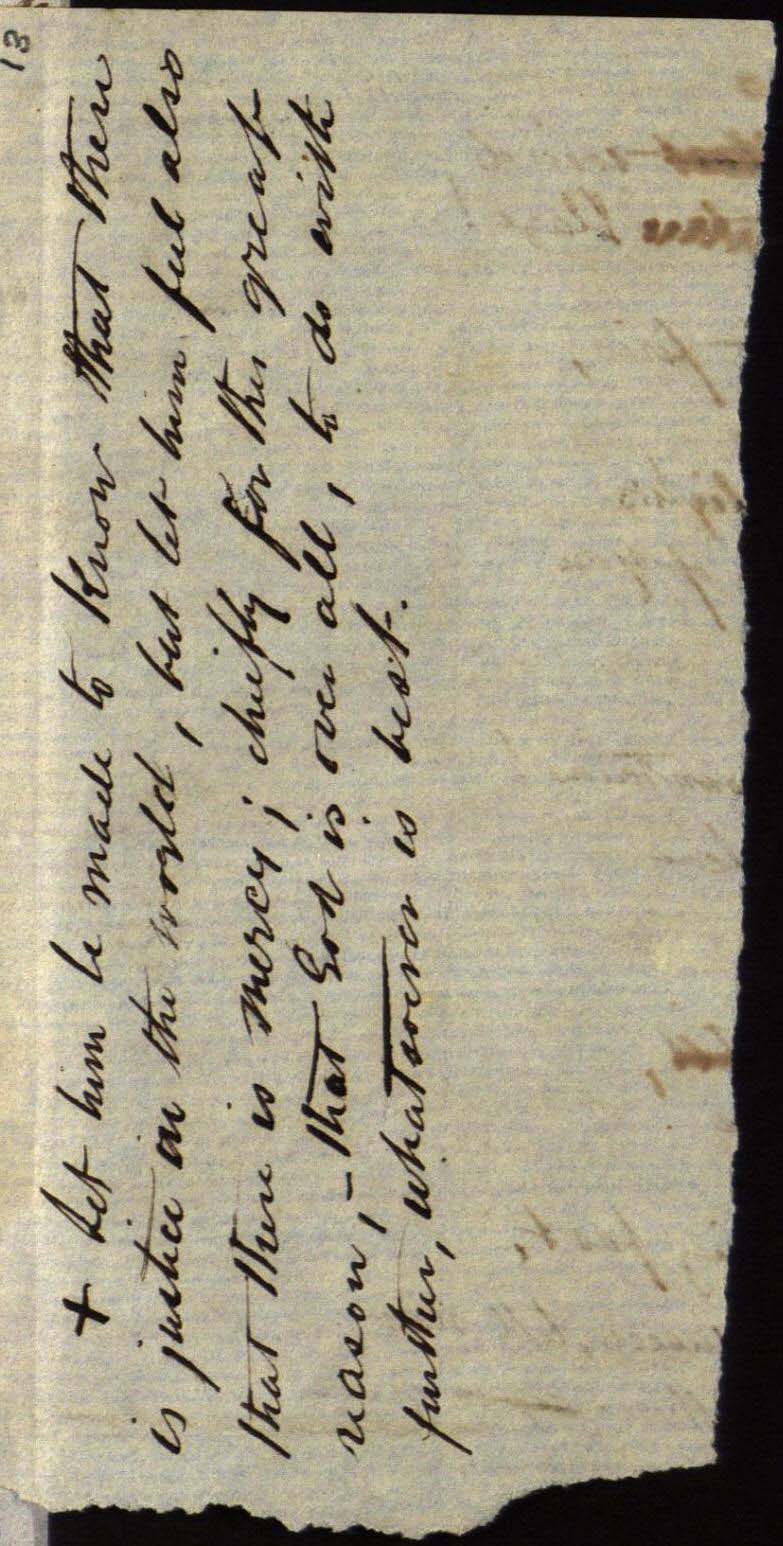 13
+ Let him be made to know that there
is justice in the world, but let him feel also
that there is mercy; chiefly for this great
reason, – that God is over all, to do with
further, whatsoever is best.